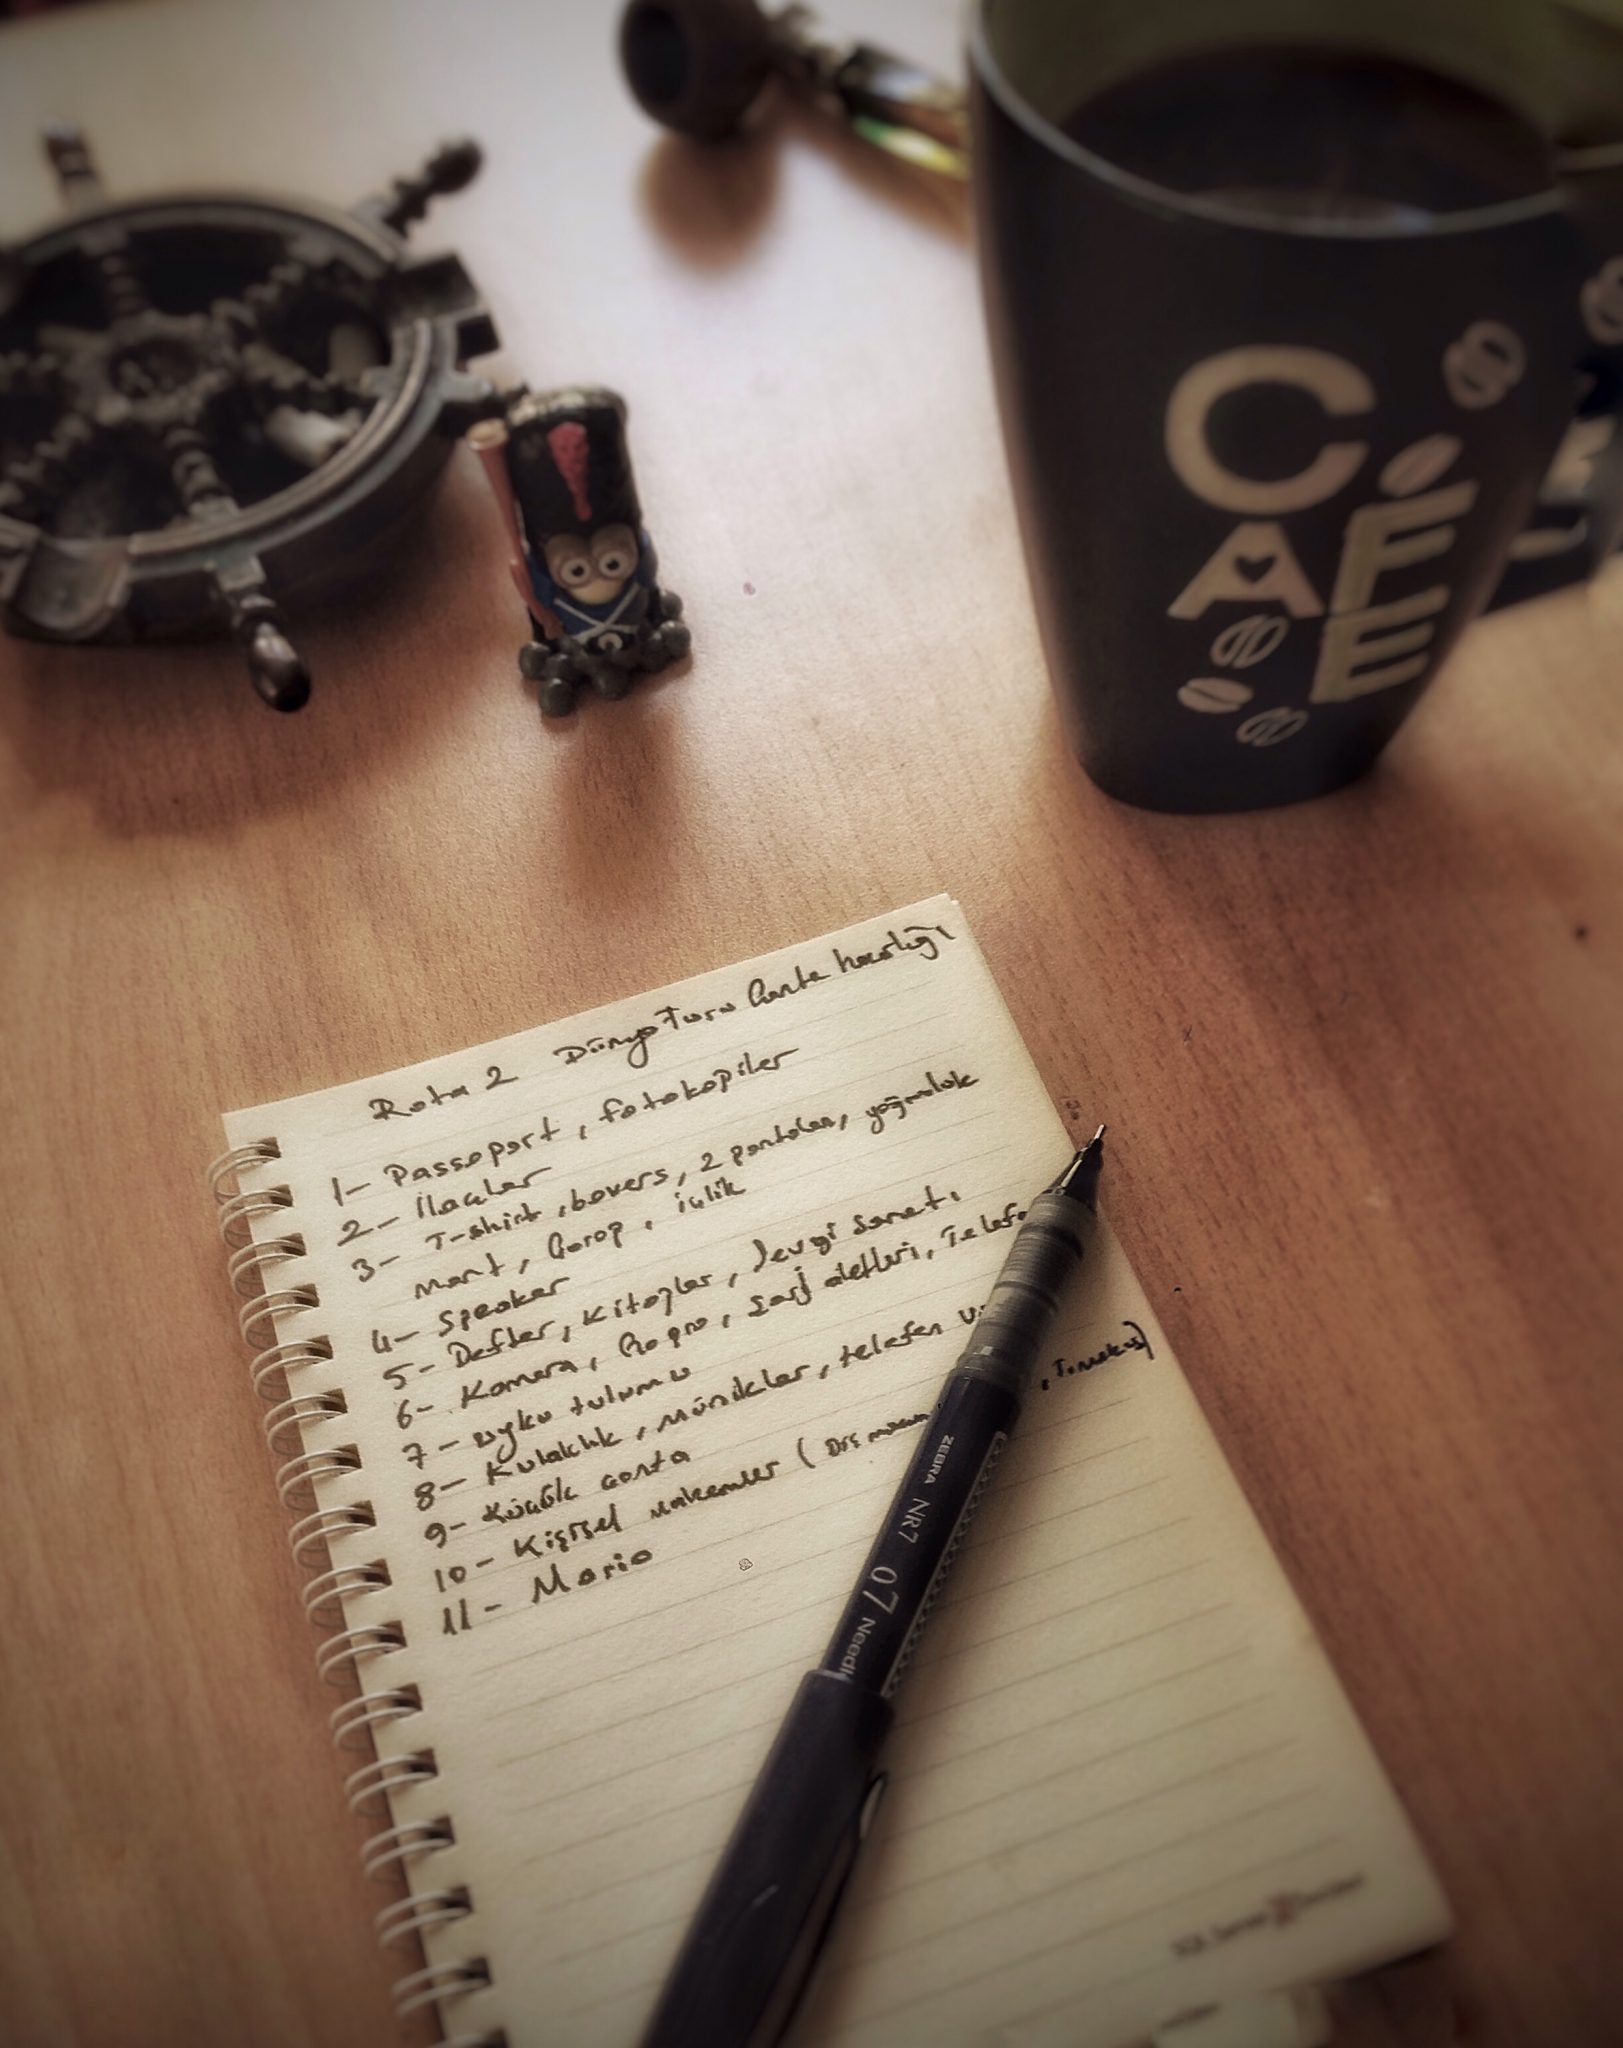 CAFE
Rota 2 Dünya Turu Çanta hazırlığı
1- Passaport, fotokopiler
2- İlaçlar
3- T-shirt, boxers, 2 pantolon, yağmurluk
mont, Çorap, içlik
4- Speaker
5- Defter, kitaplar, Sevgi Sanatı,
6- Kamera, Gopro, şarj aletleri, Telefon
7- uyku tulumu
8- Kulaklık, Müzikler, telefon
9- Küçük çanta
10- Kişisel malzemeler (Diş
11- Mario
ZEBRA NR7 07 Needl